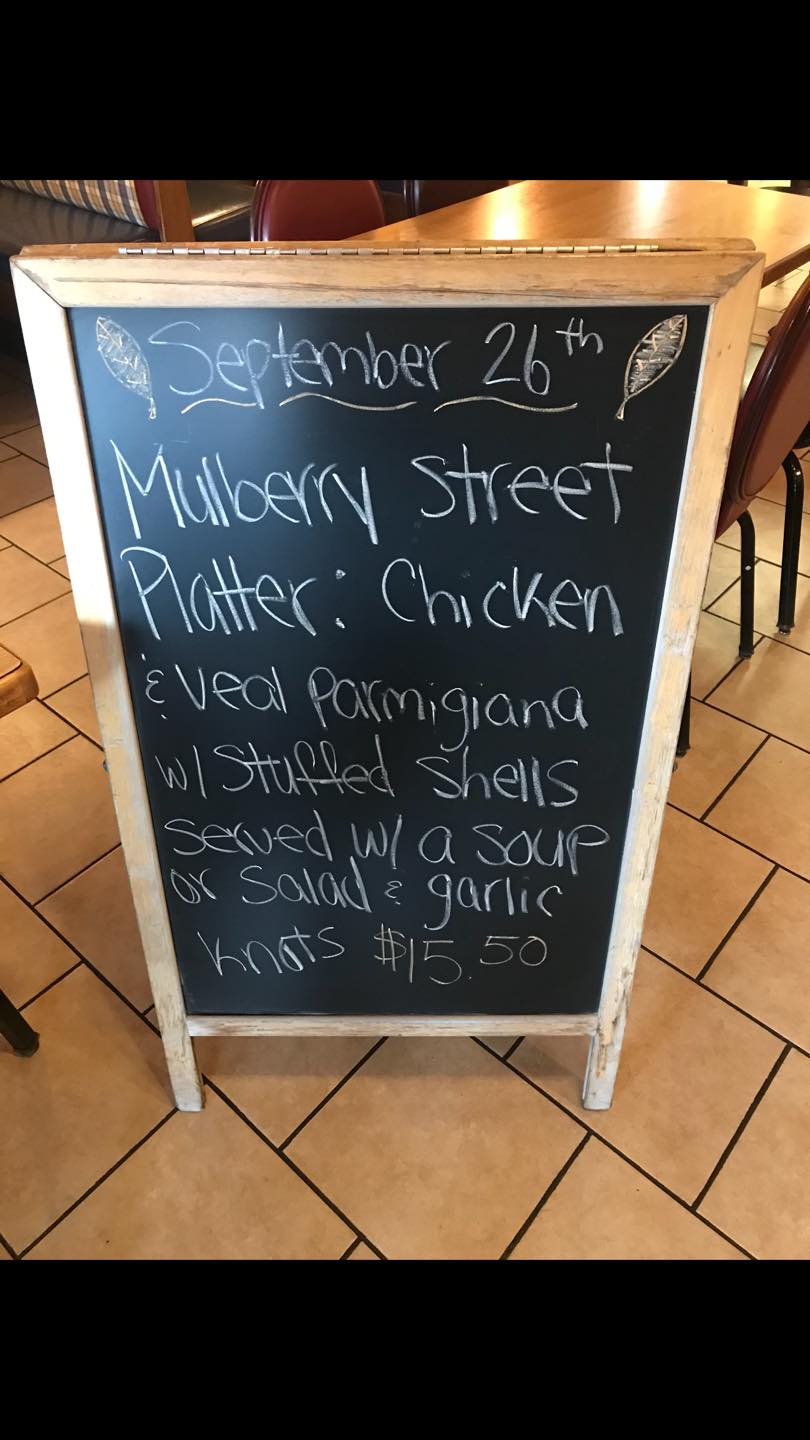 September 26th
Mulberry Street
Platter: Chicken
& Veal Parmigiana
w/ Stuffed Shells
Served w/ a Soup
or Salad & garlic
Knots $15.50